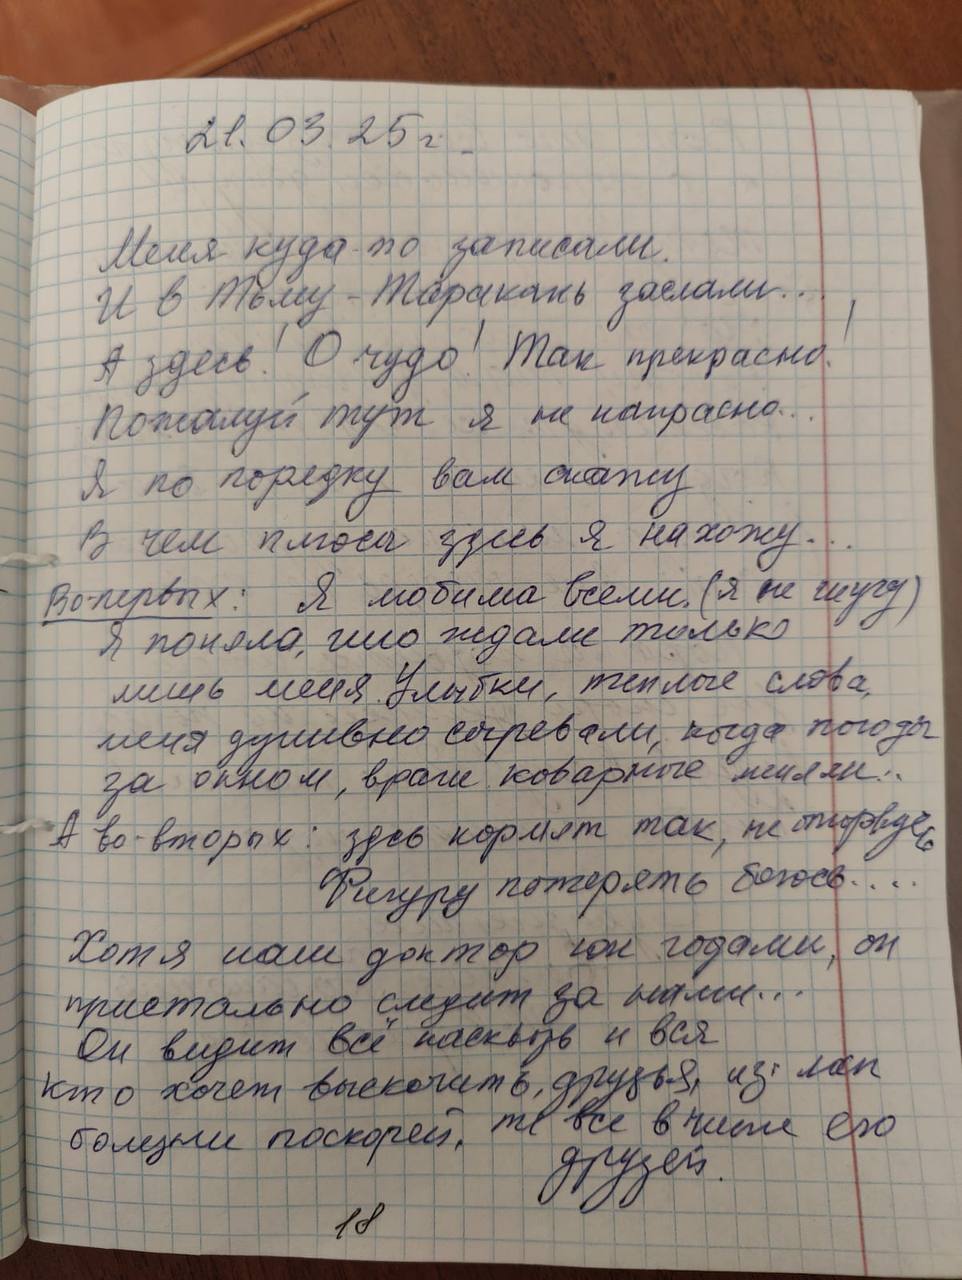 21.03.25г.
Меня куда-то записали.
И в Тьму-Таракань заслали...
А здесь! О чудо! Так прекрасно!
Пожалуй тут я не напрасно...
Я по порядку вам скажу
В чем плюсы здесь я нахожу...
Во-первых: Я любима всеми. (я не шучу)
Я поняла, что ждали только
лишь меня. Улыбки, теплые слова,
меня душевно согревали, когда погоды
за окном, враги коварные меняли...
А во-вторых: здесь кормят так, не оторвдесь
Фигуру потерять боюсь....
Хотя наш доктор юн годами, он
пристально следит за нами...
Он видит всё насквозь и вся
Кто хочет выскочить, друзья, из лап
болезни поскорей, те все в числе его
друзей.
18